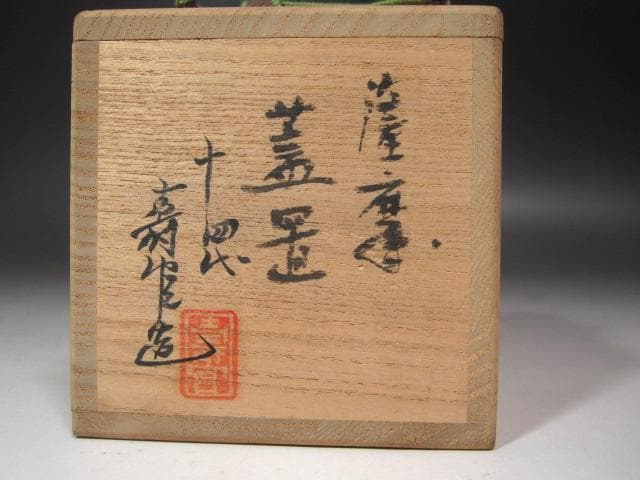 薩摩
蓋置
十四代
壽官造